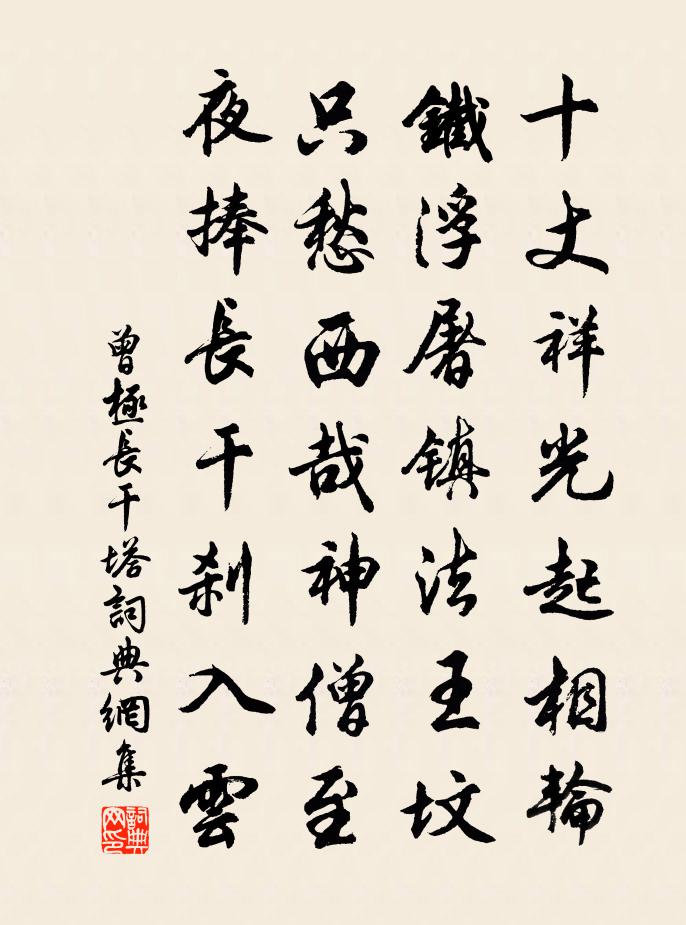 十丈祥光起相輪
鐵浮屠鎮法王墳
只愁西哉神僧至
夜捧長干刹入雲
曾極長干塔詞典網集
詞典网印